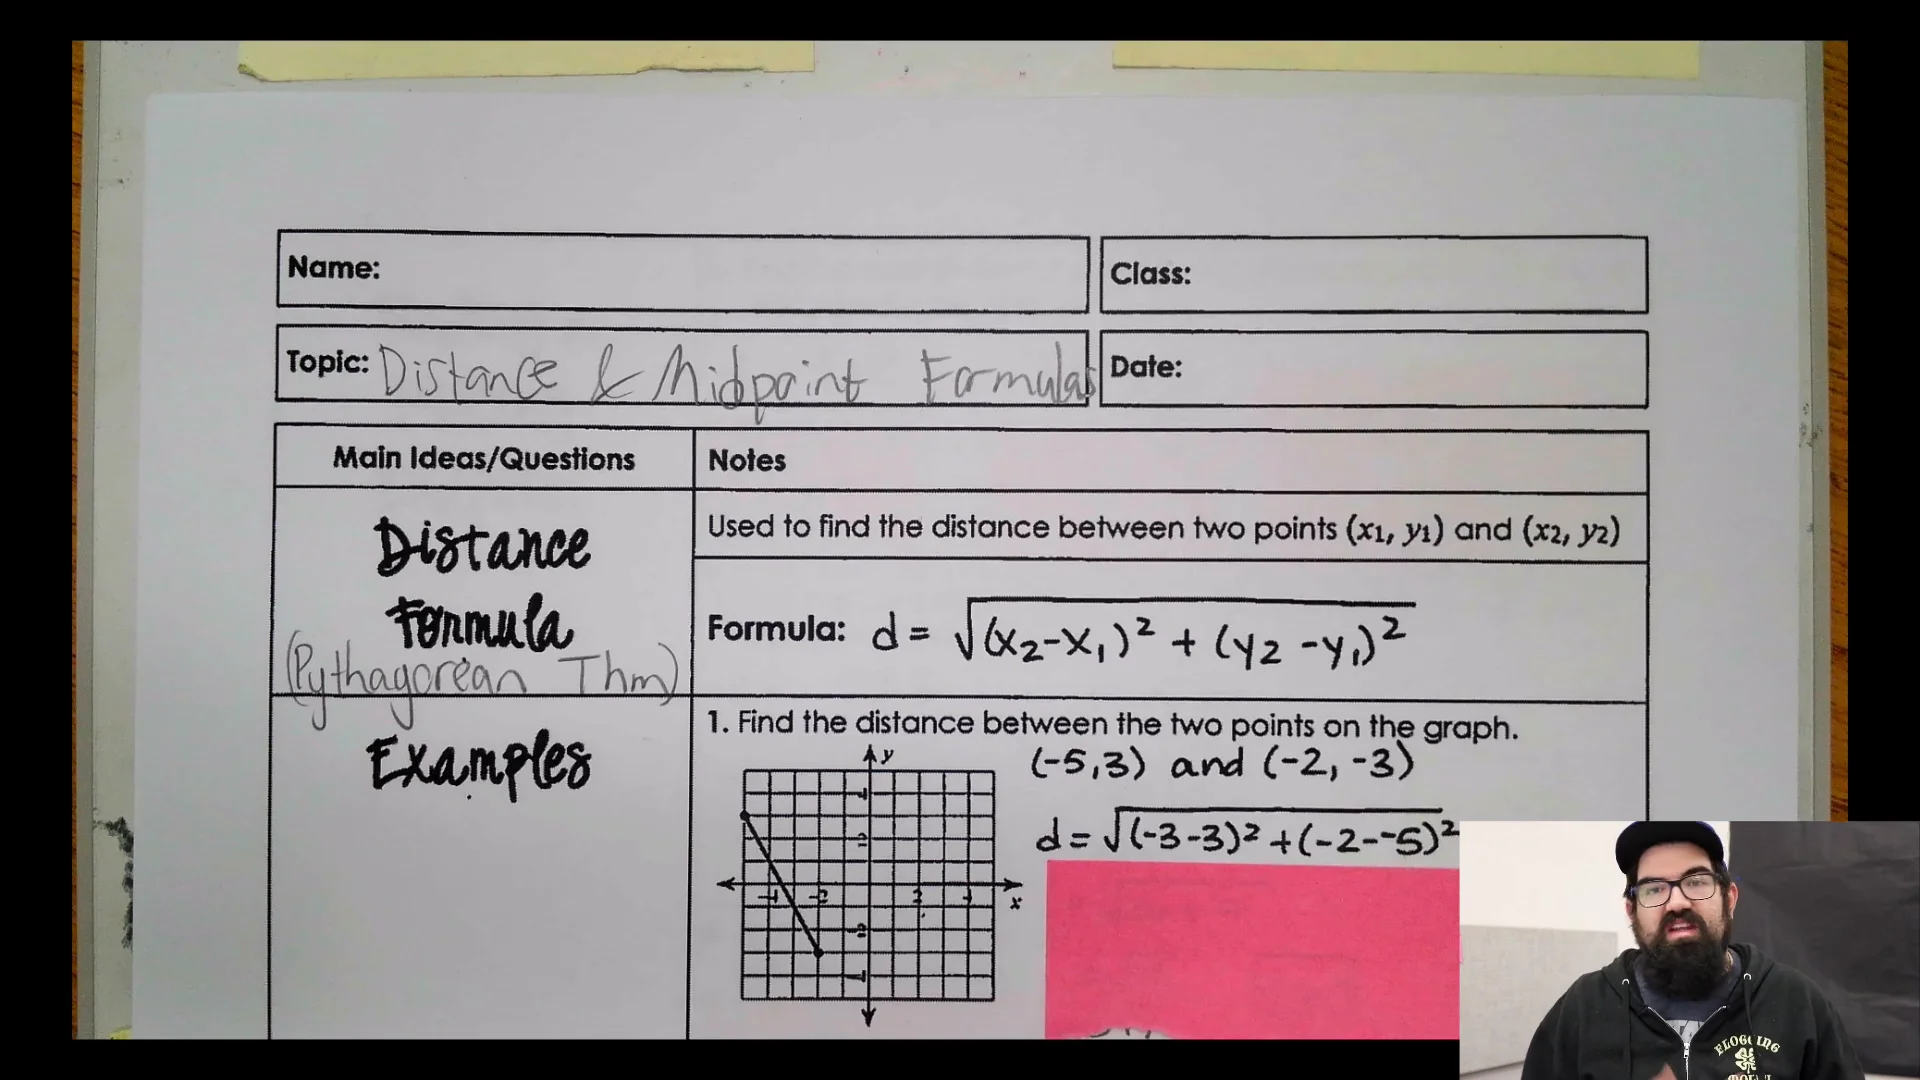 Name:
Class:
Topic: Distance & Midpoint Formulas
Date:
Main Ideas/Questions
Notes
Distance
Formula
(Pythagorean Thm)
Used to find the distance between two points (x1, y1) and (x2, y2)
Formula: d = √(x₂-x₁)² + (y₂ -y₁)²
Examples
1. Find the distance between the two points on the graph.
(-5,3) and (-2, -3)
d = √(-3-3)² + (-2--5)²
y
x
FLOGGING